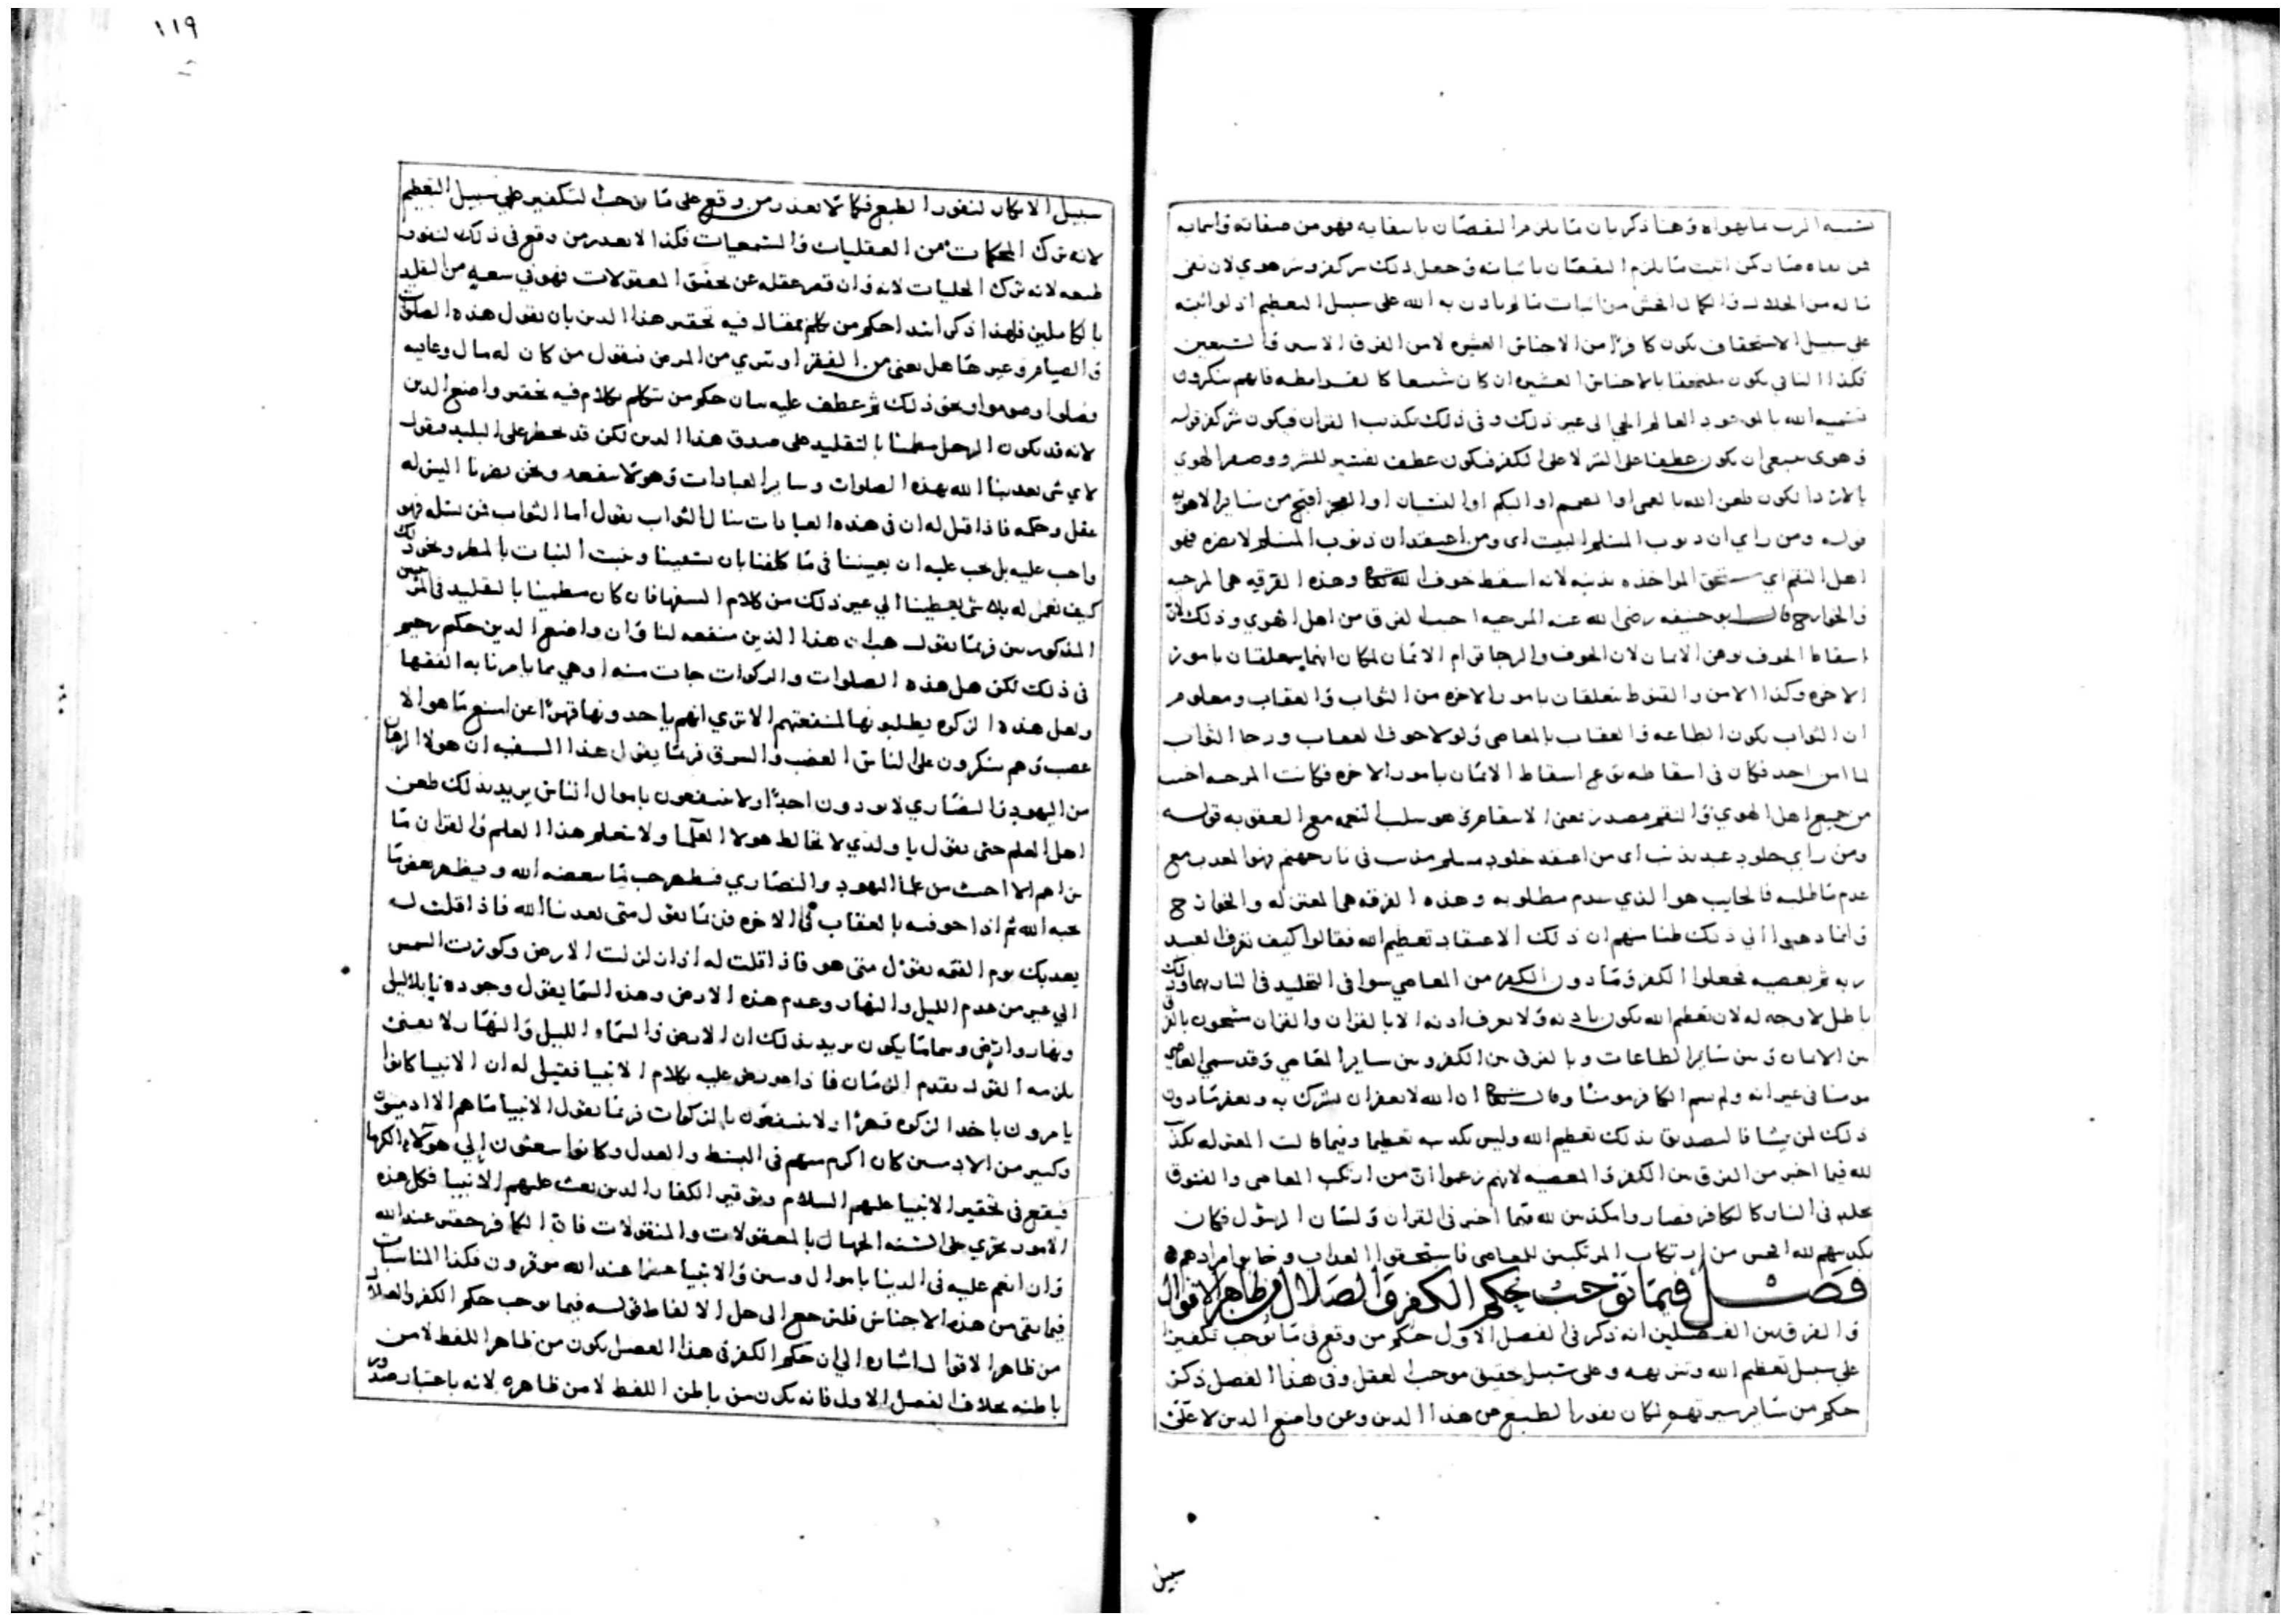 ١١٩
نسبه الرب بما يهواه وهنا ذكر بان ما يلزم النقصان بانتفايه فهو من صفاته واسمايه
فمن نفاه صار كمن اثبت ما يلزم النقصان باثباته وجعل ذلك شر كفر وشر هوي لان نفى
ما له من الجلال والكمال افحش من اثبات ما لم ياذن به الله على سبيل التعظيم اذ لو اثبته
على سبيل الاستخفاف يكون كافرا من الاجناس العشره لا من الفرق الاسى والسبعين
فكذا النافي يكون ملتحقا بالاجناس العشره ان كان شيعيا كالقرامطه فانهم ينكرون
تسميه الله بالموجود العالم الحي الى غير ذلك وفى ذلك تكذيب القران فيكون شر كفر قوله
وهوى ينبغى ان يكون عطفا على الشر لا على الكفر فيكون عطف تفسير للشر ووصف الهوي
بالاشد لكون طعن الله بالعمى او الصمم او البكم او النسيان او العجز اقبح من ساير الاهويه
قوله ومن راي ان ذنوب المسلم البيت اى ومن اعتقد ان ذنوب المسلم لا تضره فهو
اهل النقم اي يستحق المواخذه بذنبه لانه اسقط خوف الله تعالى وهذه الفرقه هي المرجيه
والخوارج قال ابو حنيفه رضى الله عنه المرجيه اخبث الفرق من اهل الهوي وذلك لان
اسقاط الخوف يوهن الايمان لان الخوف والرجا قوام الايمان لمكان انهما يتعلقان بامور
الاخره وكذا الامن والقنوط يتعلقان بامور الاخره من الثواب والعقاب ومعلوم
ان الثواب يكون بالطاعه والعقاب بالمعاصى ولولا خوف العقاب ورجا الثواب
لما امن احد فكان فى اسقاطه نوع اسقاط الايمان بامور الاخره فكانت المرجيه اخبث
من جميع اهل الهوي والنقم مصدر بمعنى الانتقام وهو سلب النعمه مع العقوبه قوله
ومن راي خلود عبد بذنب اى من اعتقد خلود مسلم مذنب فى نار جهنم فهو المعذب مع
عدم ما طلبه فالخايب هو الذي يعدم مطلوبه وهذه الفرقه هى المعتزله والخوارج
وانما ذهبوا الى ذلك ظنا منهم ان ذلك الاعتقاد تعظيم الله فقالوا كيف يعرف العبد
ربه ثم يعصيه فجعلوا الكفر وما دون الكفر من المعاصي سوا فى التخليد فى النار بها وذلك
باطل لا وجه له لان تعظيم الله يكون باذنه ولا يعرف اذنه الا بالقران والقران مشحون بالفرق
بين الايمان وبين ساير الطاعات وبالفرق بين الكفر وبين ساير المعاصي وقد سمى العاصى
مومنا فى غير ايه ولم يسم الكافر مومنا وقال تعالى ان الله لا يغفر ان يشرك به ويغفر ما دون
ذلك لمن يشا فالتصديق بذلك تعظيم الله وليس تكذيبه تعظيما وفيما قالت المعتزله تكذيب
لله فيما اخبر من الفرق بين الكفر والمعصيه لانهم زعموا ان من ارتكب المعاصى والفسوق
يخلد فى النار كالكافر فصاروا مكذبين لله فيما اخبر فى القران ولسان الرسول فكان
تكذيبهم لله افحش من ارتكاب المرتكبين للمعاصى فاستحقوا العذاب وخابوا مرادهم
فصل فيما توجب بحكم الكفر والضلال من ظاهر الاقوال
والفرق بين الفصلين انه ذكر فى الفصل الاول حكم من وقع فى ما يوجب تكفيرا
على سبيل تعظيم الله وتنزيهه وعلى سبيل تحقيق موجب العقل وفى هذا الفصل ذكر
حكم من سا سيرتهم لكان نفور الطبع عن هذا الدين وعن واضع الدين لا على
سبيل
سبيل الانكار لنفور الطبع فكما لا يعذر من وقع على ما يوجب التكفير على سبيل التعظيم
لانه ترك المحكمات من العقليات والسمعيات فكذا لا يعذر من وقع فى ذلك لنفور
طبعه لانه ترك الجليات لانه وان قصر عقله عن تحقيق المعقولات فهو فى سعه من التقليد
بالكاملين فلهذا ذكر ابتدا حكم من تكلم بمقال فيه تحقير هذا الدين بان يقول هذه الصلوات
والصيام وغيرها هل يغنى من الفقر او تبري من المرض فيقول من كان له مال وعافيه
فصلوا وصوموا ونحو ذلك ثم عطف عليه بيان حكم من تكلم بكلام فيه تحقير واضع الدين
لانه قد يكون الرجل مطمئنا بالتقليد على صدق هذا الدين لكن قد يخطر على البليد فيقول
لاي شى يعذبنا الله بهذه الصلوات وساير العبادات وهو لا ينفعه ونحن يضرنا اليس له
عقل وحكمه فاذا قيل له ان فى هذه العبادات ينال الثواب يقول اما الثواب فمن يسله فهو
واجب عليه بل يجب عليه ان يعيننا فى ما كلفنا بان يشبعنا وينبت النبات بالمطر ونحو ذلك
كيف نعمل له بلا شى يعطينا الي غير ذلك من كلام السفها فان كان مطمينا بالتقليد فى الامرين
المذكورين فربما يقول هب ان هذا الدين منفعه لنا وان واضع الدين حكيم رحيم
فى ذلك لكن هل هذه الصلوات والزكوات جات منه او هي مما يامرنا به الفقها
ولعل هذه الزكوه يطلبونها لمنفعتهم الا تري انهم ياخذونها قهرا عن امنع ما هو الا
غصب وهم ينكرون على الناس الغصب والسرق فربما يقول هذا السفيه ان هولا الرهبان
من اليهود والنصاري لا يوذون احدا ولا ينتفعون باموال الناس يريد بذلك طعن
اهل العلم حتى يقول يا ولدي لا تخالط هولا العلما ولا تتعلم هذا العلم والقران ما
نراهم الا اخبث من علما اليهود والنصاري فيظهر حب ما يبغضه الله ويظهر بغض ما
يحبه الله ثم اذا خوفته بالعقاب فى الاخره فربما يقول متى يعذبنا الله فاذا قلت له
يعذبك يوم القيمه يقول متى هو فاذا قلت له اذا زلزلت الارض وكورت الشمس
الي غير من عدم الليل والنهار وعدم هذه الارض وهذه السما يقول وجود دنيا بلا ليل
ونهار وارض وسما ما يكون يريد بذلك ان الارض والسما والليل والنهار لا يفنى
يلزمه القول بقدم الزمان فاذا عورض عليه بكلام الانبيا فقيل له ان الانبيا كانوا
يامرون باخذ الزكوه قهرا ولا ينتفعون بالزكوات فربما يقول الانبيا ما هم الا ادميون
وكثير من الادميين كان اكرم منهم فى البسط والعدل وكانوا يبعثون الي هولاء الكرما
فيقع فى تحقير الانبيا عليهم السلام وتوقير الكفار الذين بعث عليهم الانبيا فكل هذه
الامور تجري على السنه الجهال بالمعقولات والمنقولات فان الكافر حقير عند الله
وان انعم عليه فى الدنيا باموال وبنين والانبيا عند الله موقرون فكذا المناسبات
فيما بقى من هذه الاجناس فلنرجع الى حل الالفاظ قوله فيما يوجب حكم الكفر والضلال
من ظاهر الاقوال اشاره الي ان حكم الكفر فى هذا الفصل يكون من ظاهر اللفظ لا من
باطنه بخلاف الفصل الاول فانه يكون من باطن اللفظ لا من ظاهره لانه باعتبار صدور